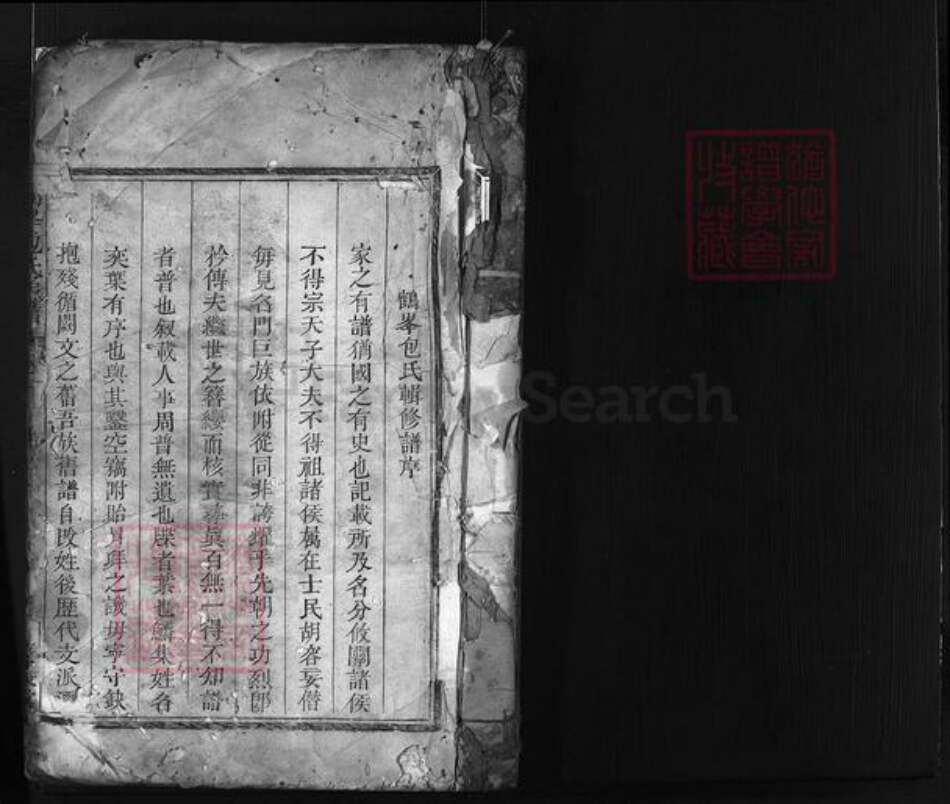 鶴峯包氏輯修譜序
家之有譜猶國之有史也記載所及名分攸關諸侯
不得宗天子大夫不得祖諸侯屬在士民胡容妄僭
每見名門巨族依附從同非誇耀乎先朝之功烈即
矜傳夫繼世之簪纓而核實尋真百無一得不知譜
者普也叙載人事周普無遺也牒者葉也鱗集姓名
奕葉有序也與其鑿空竊附貽拜之譏毋寧守缺
抱殘循闕文之舊吾族舊譜自改姓後歷代支派
Search